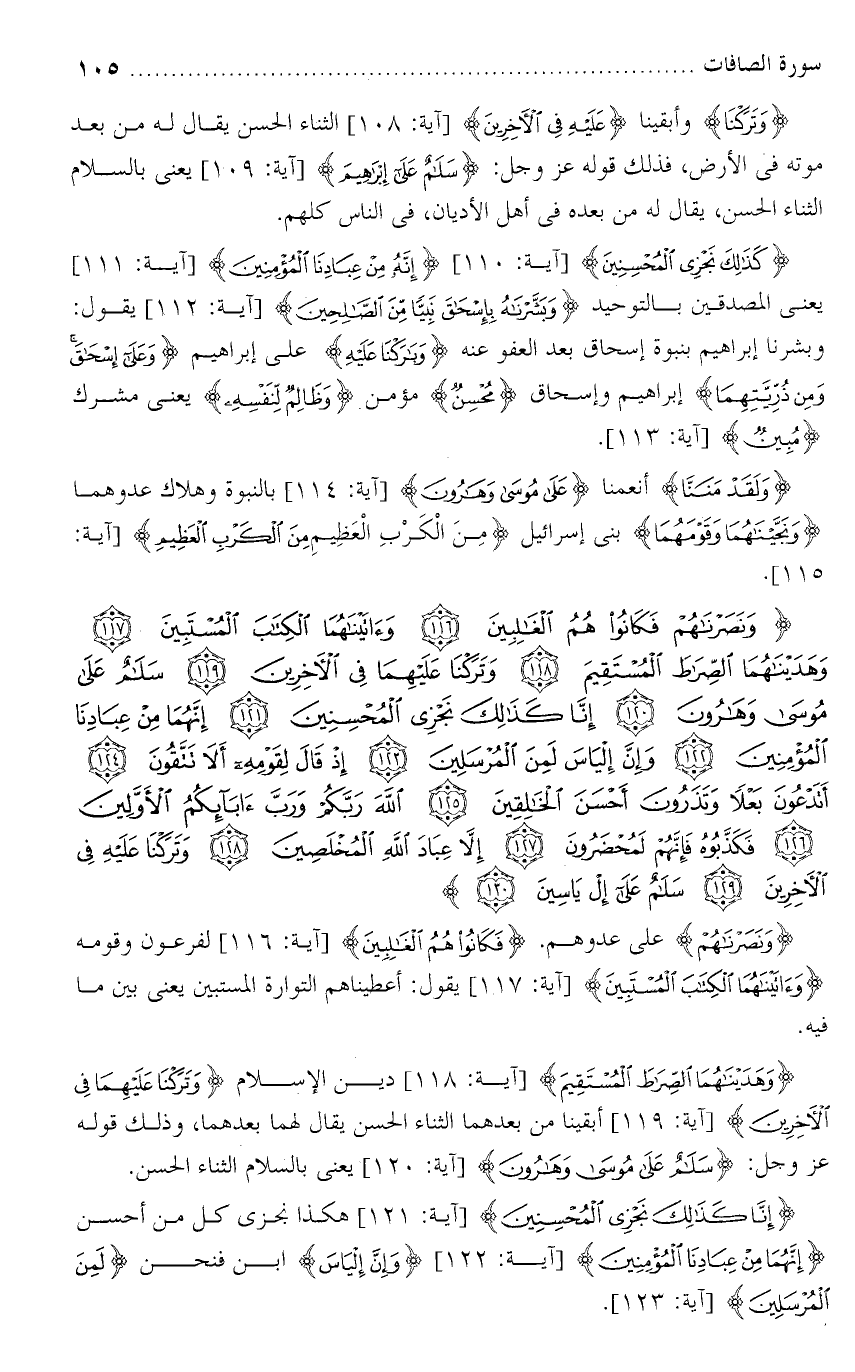 سورة الصافات ..................................................................... ١٠٥
﴿وَتَرَكْنَا﴾ وأبقينا ﴿عَلَيْهِ فِى ٱلْأَخِرِينَ﴾ [آية: ١٠٨] الثناء الحسن يقال له من بعد
موته فى الأرض، فذلك قوله عز وجل: ﴿سَلَٰمٌ عَلَىٰٓ إِبْرَٰهِيمَ﴾ [آية: ١٠٩] يعنى بالسلام
الثناء الحسن، يقال له من بعده فى أهل الأديان، فى الناس كلهم.
﴿كَذَٰلِكَ نَجْزِى ٱلْمُحْسِنِينَ﴾ [آية: ١١٠] ﴿إِنَّهُۥ مِنْ عِبَادِنَا ٱلْمُؤْمِنِينَ﴾ [آية: ١١١]
يعنى المصدقين بالتوحيد ﴿وَبَشَّرْنَٰهُ بِإِسْحَٰقَ نَبِيًّا مِّنَ ٱلصَّٰلِحِينَ﴾ [آية: ١١٢] يقول:
وبشرنا إبراهيم بنبوة إسحاق بعد العفو عنه ﴿وَبَٰرَكْنَا عَلَيْهِ﴾ على إبراهيم ﴿وَعَلَىٰٓ إِسْحَٰقَۚ
وَمِن ذُرِّيَّتِهِمَا﴾ إبراهيم وإسحاق ﴿مُحْسِنٌ﴾ مؤمن ﴿وَظَالِمٌ لِّنَفْسِهِۦ﴾ يعنى مشرك
﴿مُبِينٌ﴾ [آية: ١١٣].
﴿وَلَقَدْ مَنَنَّا﴾ أنعمنا ﴿عَلَىٰ مُوسَىٰ وَهَٰرُونَ﴾ [آية: ١١٤] بالنبوة وهلاك عدوهما
﴿وَنَجَّيْنَٰهُمَا وَقَوْمَهُمَا﴾ بنى إسرائيل ﴿مِنَ الْكَرْبِ الْعَظِيمِ مِنَ ٱلْكَرْبِ ٱلْعَظِيمِ﴾ [آية:
١١٥].
﴿وَنَصَرْنَٰهُمْ فَكَانُوا۟ هُمُ ٱلْغَٰلِبِينَ ١١٦ وَءَاتَيْنَٰهُمَا ٱلْكِتَٰبَ ٱلْمُسْتَبِينَ ١١٧
وَهَدَيْنَٰهُمَا ٱلصِّرَٰطَ ٱلْمُسْتَقِيمَ ١١٨ وَتَرَكْنَا عَلَيْهِمَا فِى ٱلْأَخِرِينَ ١١٩ سَلَٰمٌ عَلَىٰ
مُوسَىٰ وَهَٰرُونَ ١٢٠ إِنَّا كَذَٰلِكَ نَجْزِى ٱلْمُحْسِنِينَ ١٢١ إِنَّهُمَا مِنْ عِبَادِنَا
ٱلْمُؤْمِنِينَ ١٢٢ وَإِنَّ إِلْيَاسَ لَمِنَ ٱلْمُرْسَلِينَ ١٢٣ إِذْ قَالَ لِقَوْمِهِۦٓ أَلَا تَتَّقُونَ ١٢٤
أَتَدْعُونَ بَعْلًا وَتَذَرُونَ أَحْسَنَ ٱلْخَٰلِقِينَ ١٢٥ ٱللَّهَ رَبَّكُمْ وَرَبَّ ءَابَآئِكُمُ ٱلْأَوَّلِينَ
١٢٦ فَكَذَّبُوهُ فَإِنَّهُمْ لَمُحْضَرُونَ ١٢٧ إِلَّا عِبَادَ ٱللَّهِ ٱلْمُخْلَصِينَ ١٢٨ وَتَرَكْنَا عَلَيْهِ فِى
ٱلْأَخِرِينَ ١٢٩ سَلَٰمٌ عَلَىٰٓ إِلْ يَاسِينَ ١٣٠﴾
﴿وَنَصَرْنَٰهُمْ﴾ على عدوهم. ﴿فَكَانُوا۟ هُمُ ٱلْغَٰلِبِينَ﴾ [آية: ١١٦] لفرعون وقومه
﴿وَءَاتَيْنَٰهُمَا ٱلْكِتَٰبَ ٱلْمُسْتَبِينَ﴾ [آية: ١١٧] يقول: أعطيناهم التوارة المستبين يعنى بين ما
فيه.
﴿وَهَدَيْنَٰهُمَا ٱلصِّرَٰطَ ٱلْمُسْتَقِيمَ﴾ [آية: ١١٨] دين الإسلام ﴿وَتَرَكْنَا عَلَيْهِمَا فِى
ٱلْأَخِرِينَ﴾ [آية: ١١٩] أبقينا من بعدهما الثناء الحسن يقال لهما بعدهما، وذلك قوله
عز وجل: ﴿سَلَٰمٌ عَلَىٰ مُوسَىٰ وَهَٰرُونَ﴾ [آية: ١٢٠] يعنى بالسلام الثناء الحسن.
﴿إِنَّا كَذَٰلِكَ نَجْزِى ٱلْمُحْسِنِينَ﴾ [آية: ١٢١] هكذا نجزى كل من أحسن
﴿إِنَّهُمَا مِنْ عِبَادِنَا ٱلْمُؤْمِنِينَ﴾ [آية: ١٢٢] ﴿وَإِنَّ إِلْيَاسَ﴾ ابن فنحن ﴿لَمِنَ
ٱلْمُرْسَلِينَ﴾ [آية: ١٢٣].